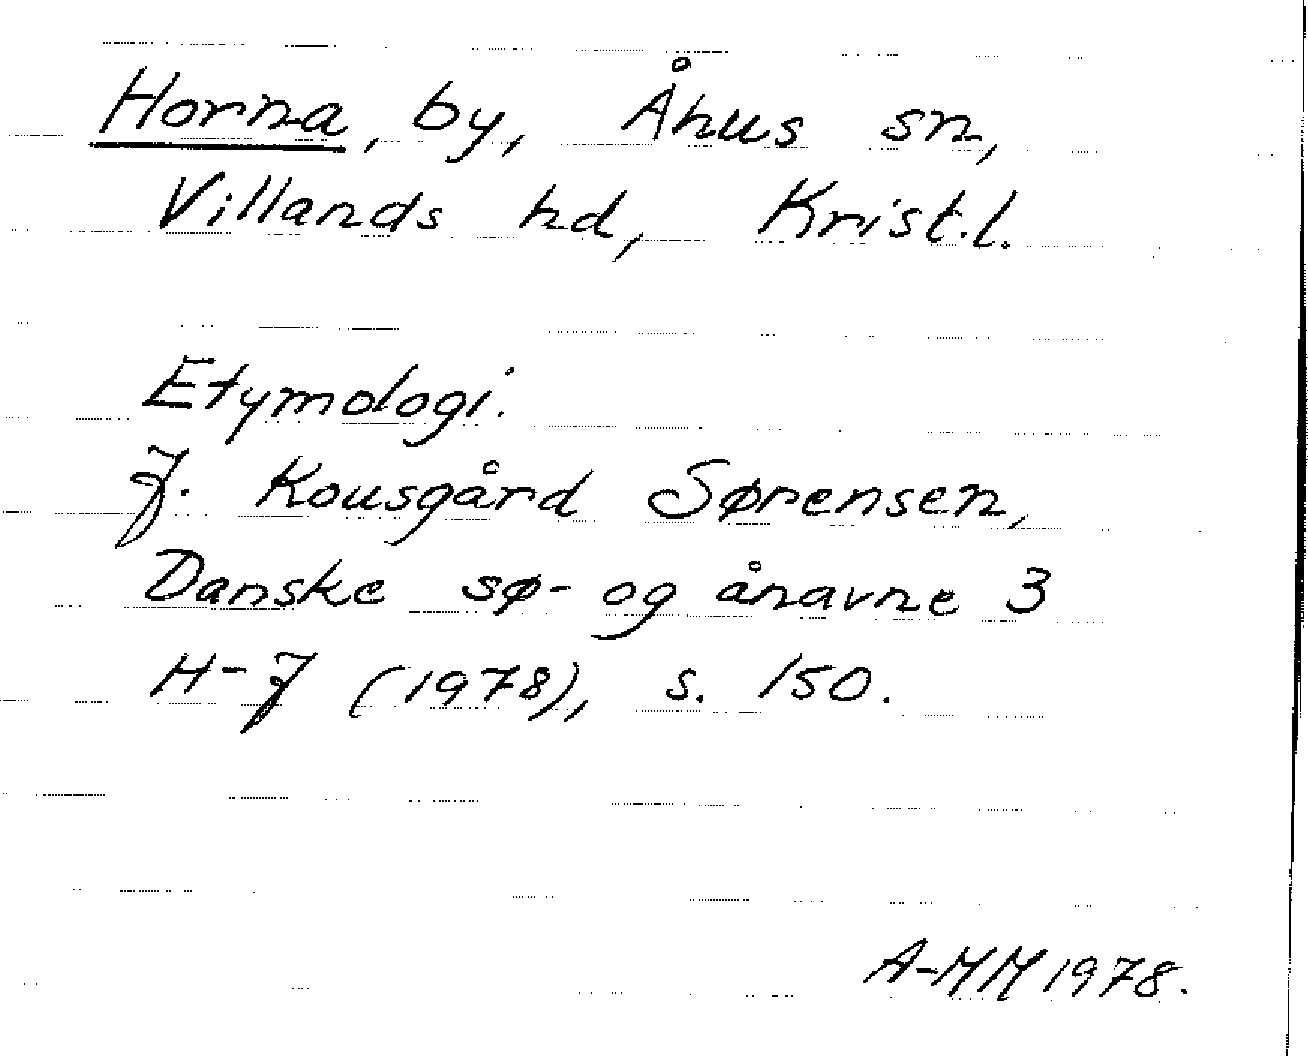 Horna, by, Åhus sn,
Villands hd, Krist.l.
Etymologi.
J. Kousgård Sørensen,
Danske sø- og ånavne 3
H-J (1978), s. 150.
A-MM 1978.